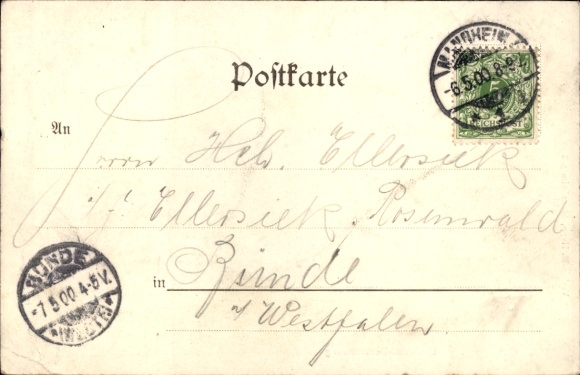 Postkarte
MANNHEIM
-6.5.00.8-9V.
1
5
REICHSPOST
An
Herrn Heb. Ellersiek
i/f Ellersiek, Rosenwald
in Bünde
i/ Westfalen.
BÜNDE
-7.5.00.4-5V.
(WESTF.)